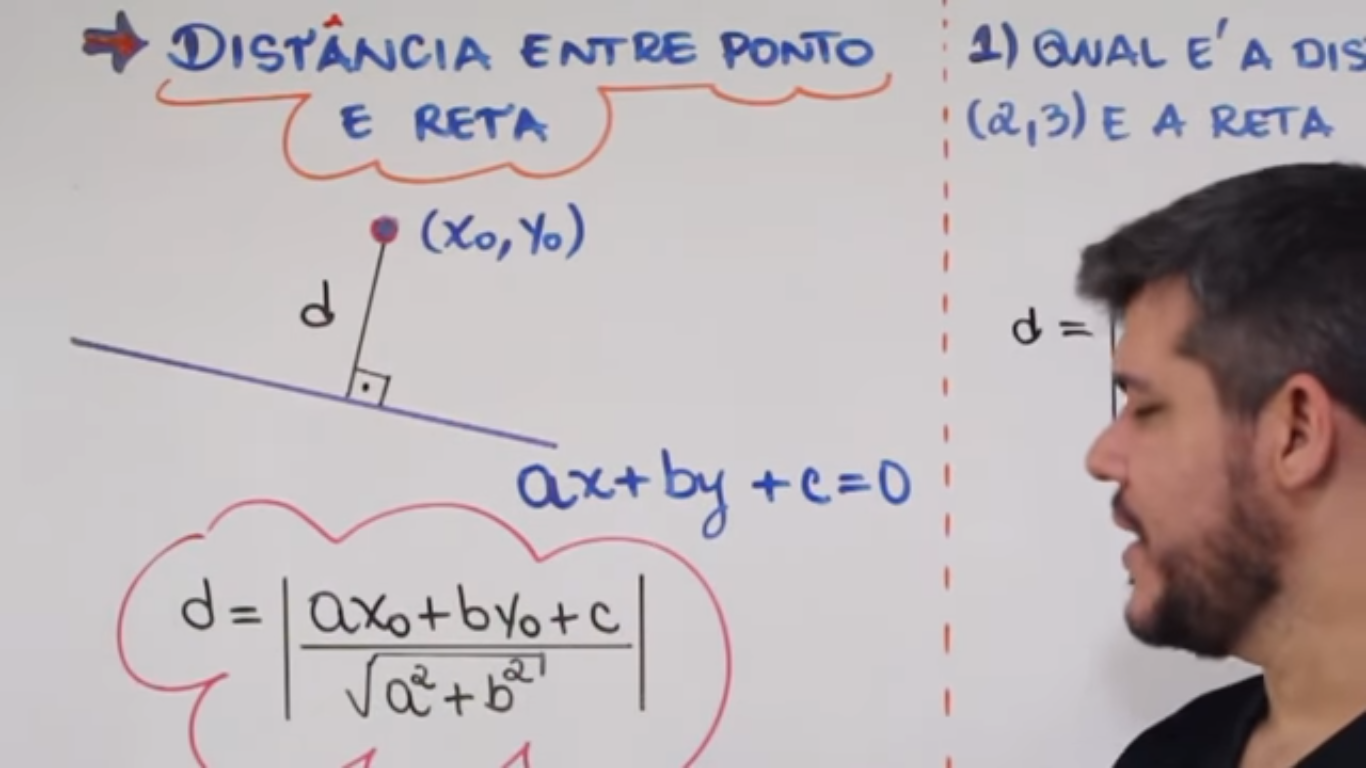 DISTÂNCIA ENTRE PONTO
E RETA
(x₀, y₀)
d
ax+by+c=0
d = | ax₀+by₀+c
√a²+b² |
1) QUAL E' A
(2,3) E A RETA
d = |